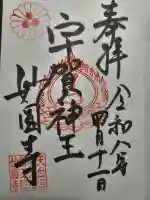 奉拝
令和八年
四月十一日
宇賀神王
妙国寺